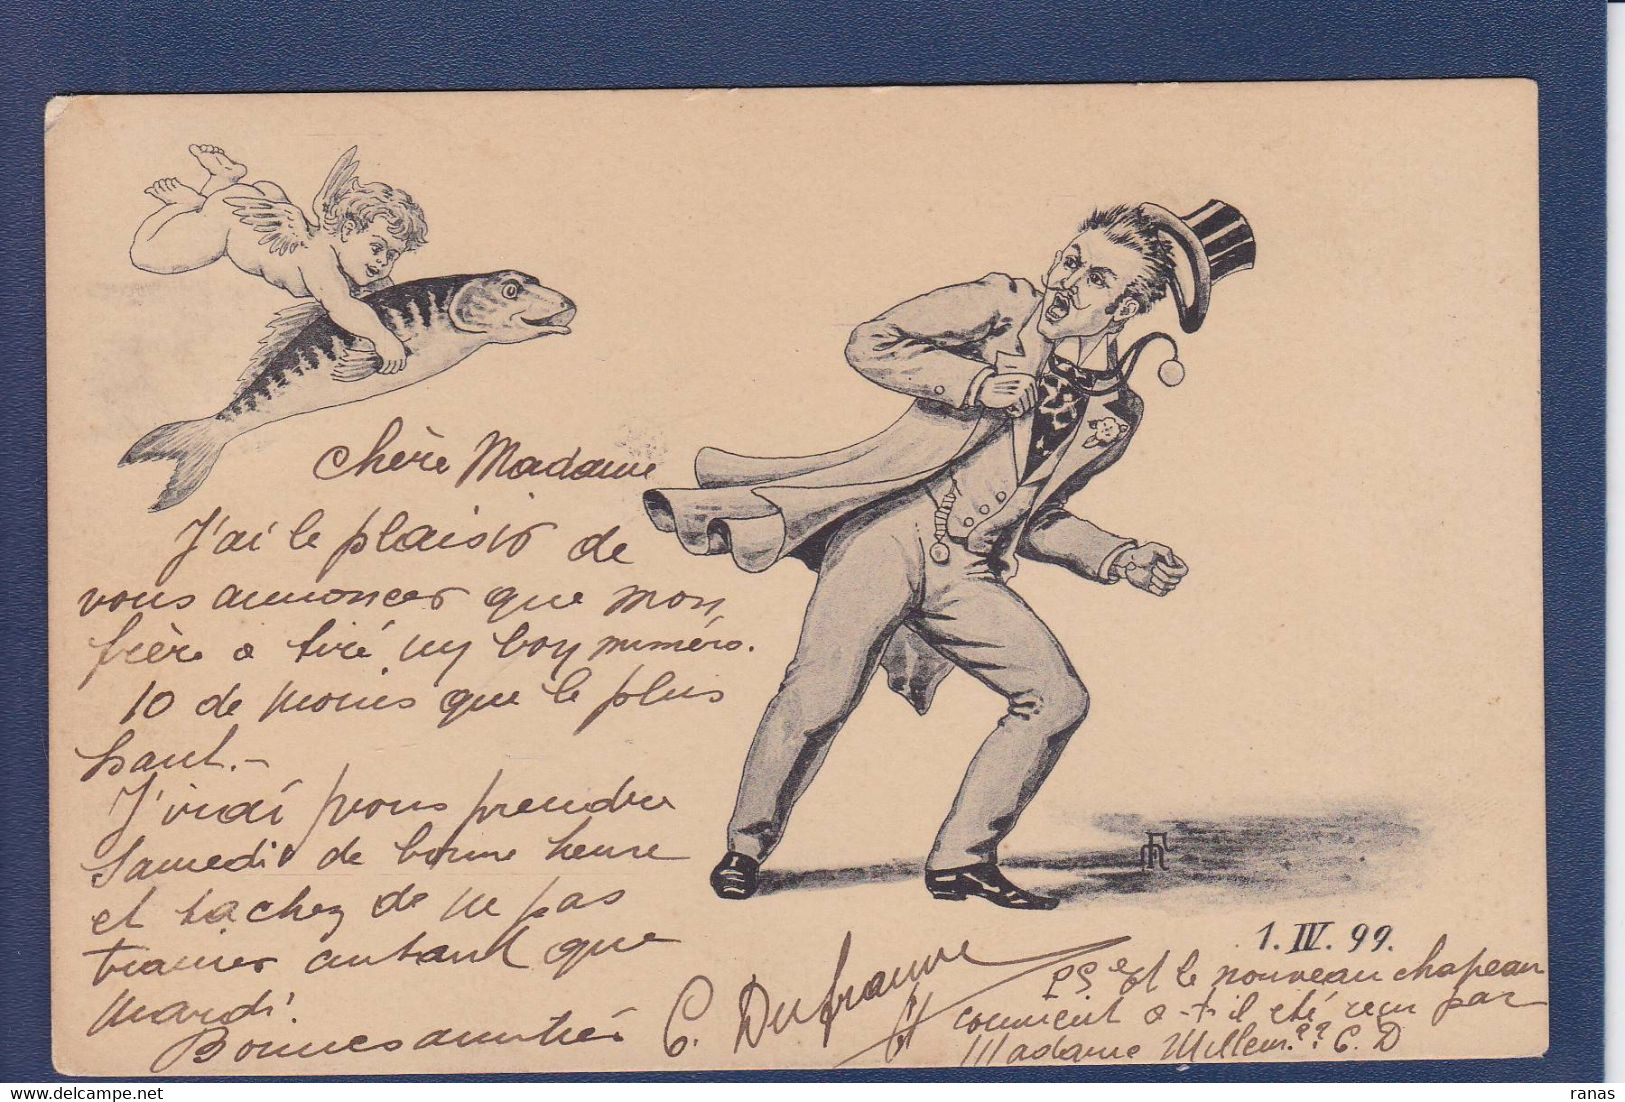 Chère Madame
J'ai le plaisir de
vous annoncer que mon
frère a tiré un bon numéro.
10 de moins que le plus
haut.-
J'irai vous prendre
Samedi de bonne heure
et tachez de ne pas
trainer autant que
mardi.
Bonnes amitiés C. Dufranne
1. IV. 99.
PS et le nouveau chapeau
comment a-t-il été reçu par
Madame ?? C. D
ranas